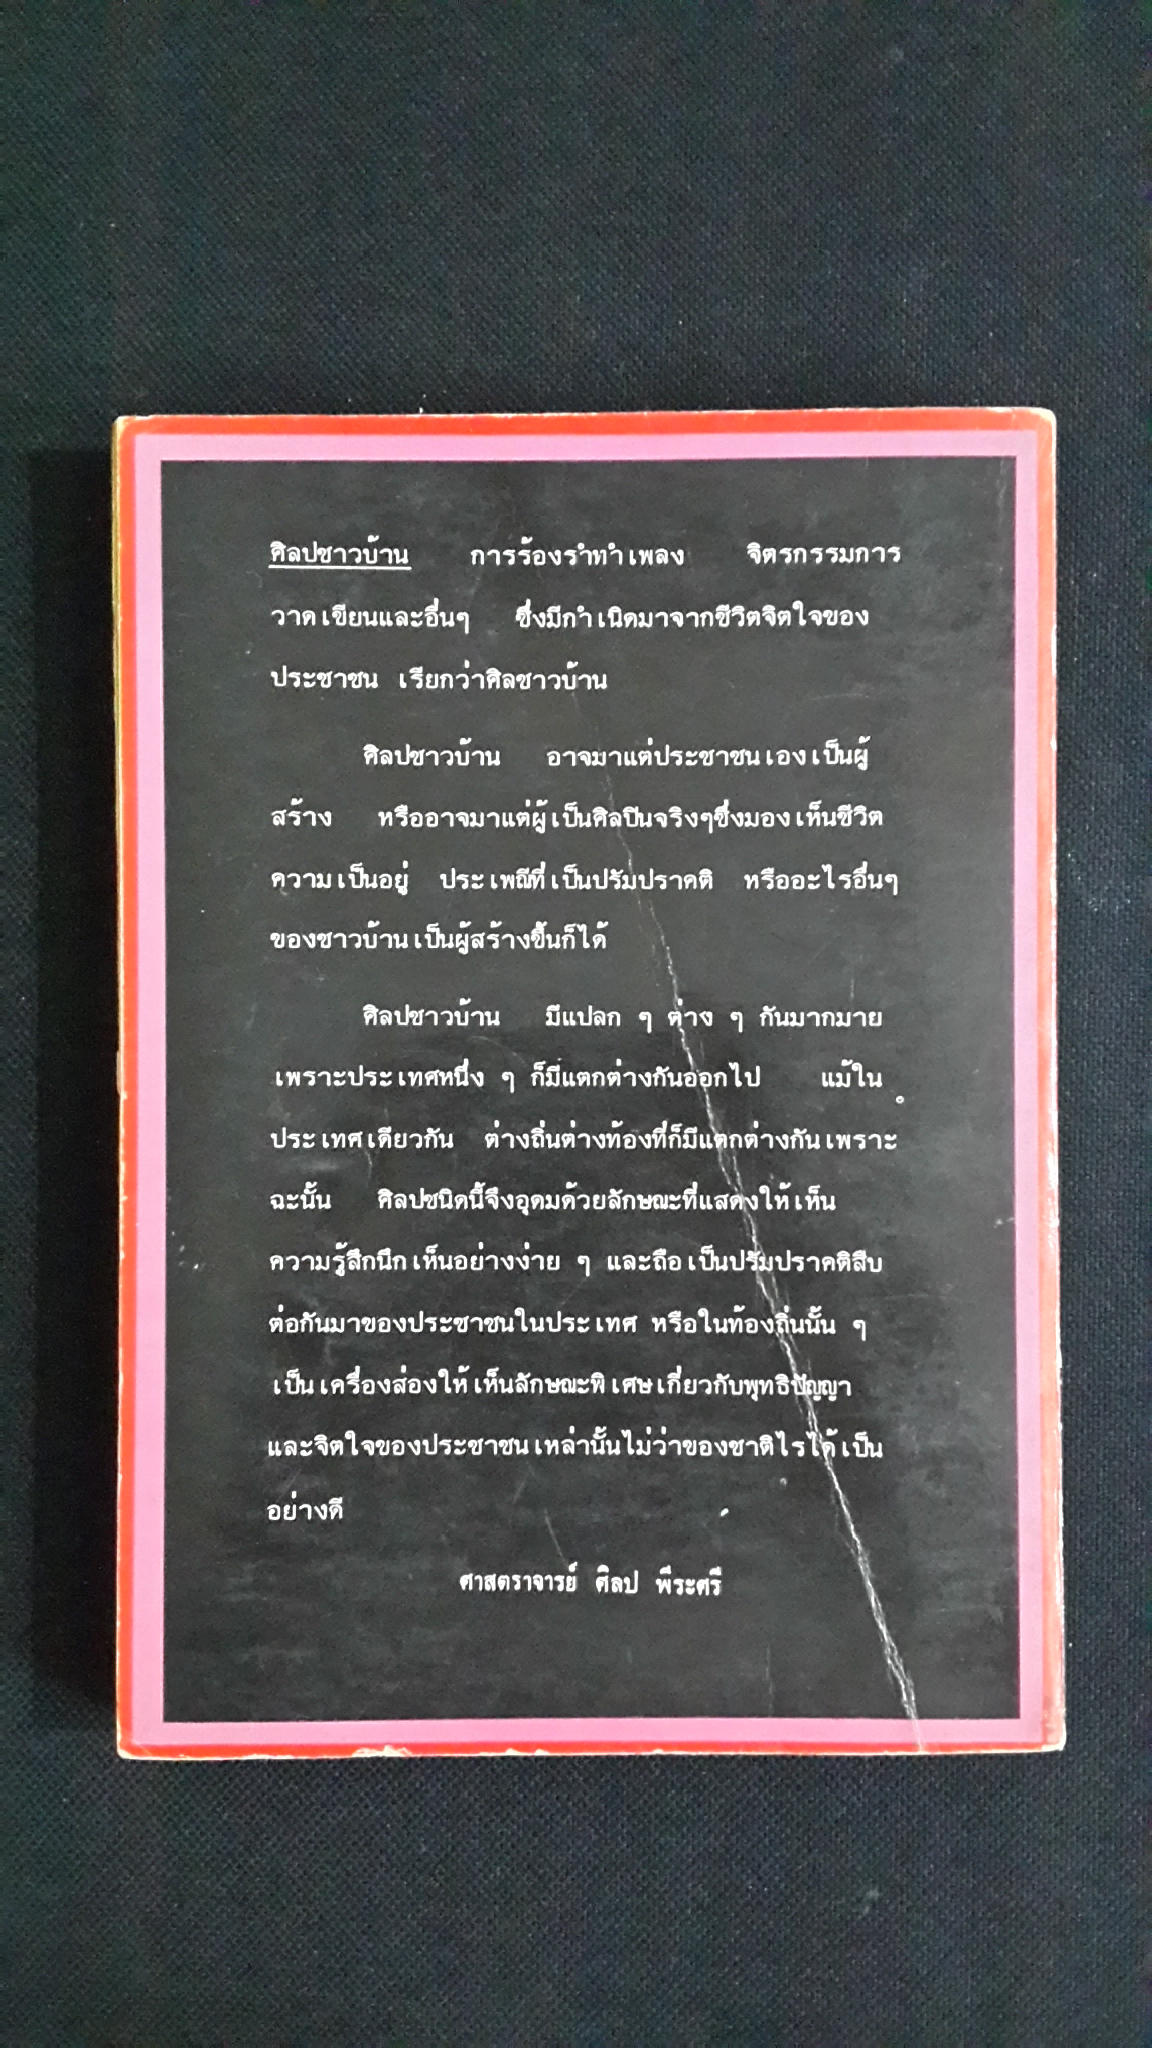 ศิลปชาวบ้าน การร้องรำทำเพลง จิตรกรรมการ
วาดเขียนและอื่นๆ ซึ่งมีกำเนิดมาจากชีวิตจิตใจของ
ประชาชน เรียกว่าศิลชาวบ้าน
ศิลปชาวบ้าน อาจมาแต่ประชาชนเองเป็นผู้
สร้าง หรืออาจมาแต่ผู้เป็นศิลปินจริงๆซึ่งมองเห็นชีวิต
ความเป็นอยู่ ประเพณีที่เป็นปรัมปราคติ หรืออะไรอื่นๆ
ของชาวบ้านเป็นผู้สร้างขึ้นก็ได้
ศิลปชาวบ้าน มีแปลก ๆ ต่าง ๆ กันมากมาย
เพราะประเทศหนึ่ง ๆ ก็มีแตกต่างกันออกไป แม้ใน
ประเทศเดียวกัน ต่างถิ่นต่างท้องที่ก็มีแตกต่างกันเพราะ
ฉะนั้น ศิลปชนิดนี้จึงอุดมด้วยลักษณะที่แสดงให้เห็น
ความรู้สึกนึกเห็นอย่างง่าย ๆ และถือเป็นปรัมปราคติสืบ
ต่อกันมาของประชาชนในประเทศ หรือในท้องถิ่นนั้น ๆ
เป็นเครื่องส่องให้เห็นลักษณะพิเศษเกี่ยวกับพุทธิปัญญา
และจิตใจของประชาชนเหล่านั้นไม่ว่าของชาติไรได้เป็น
อย่างดี
ศาสตราจารย์ ศิลป พีระศรี